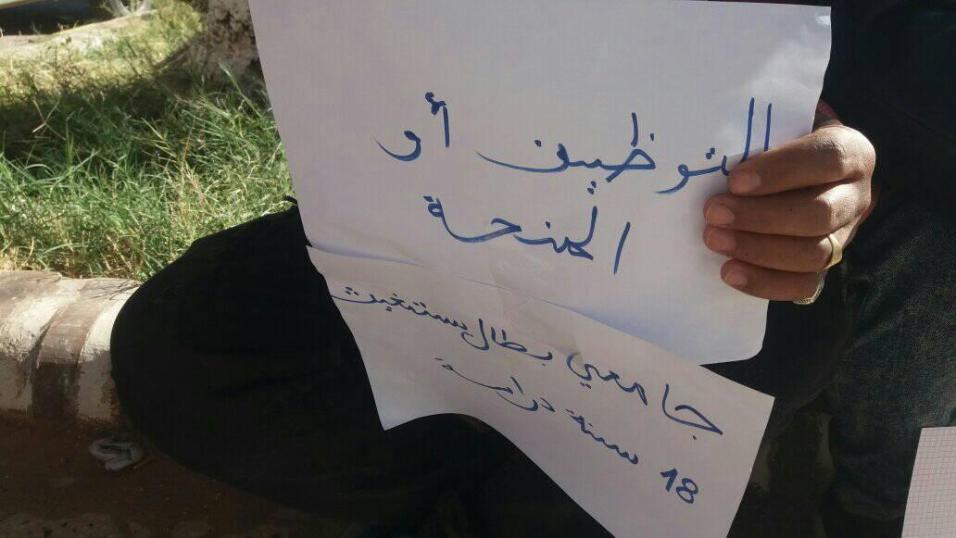 التوظيف أو
المنحة
جامعي بطال يستغيث
18 سنة دراسة